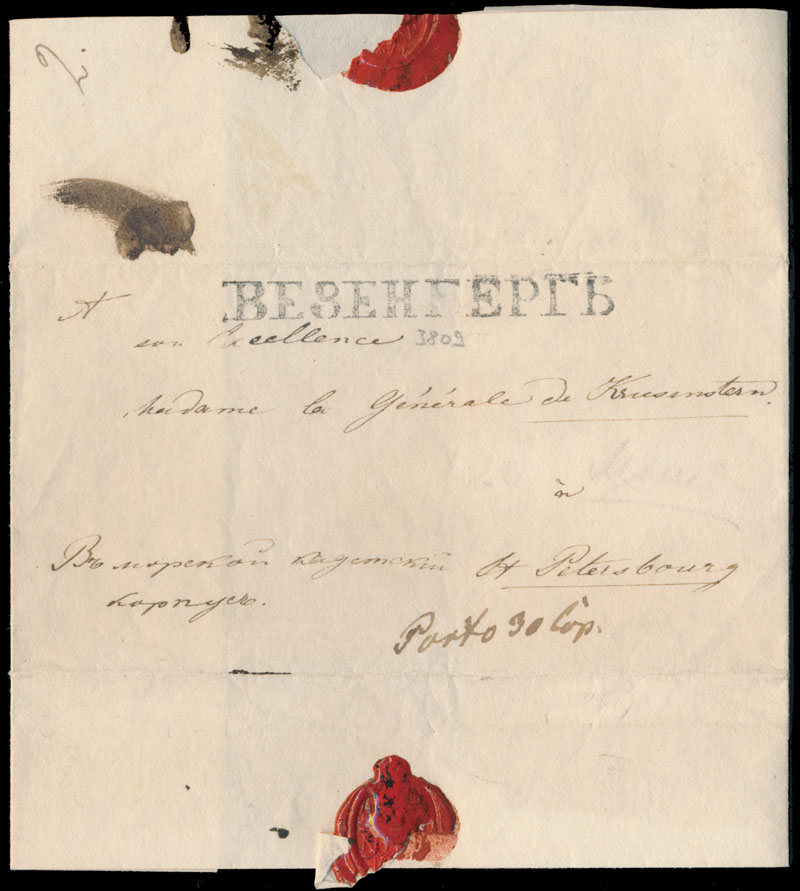 ВЕЗЕНБЕРГЪ
A
son Excellence 3809
Madame la Générale de Krusenstern.
à
St Petersbourg
Въ морской кадетскій
корпусъ.
Porto 30 Cop.